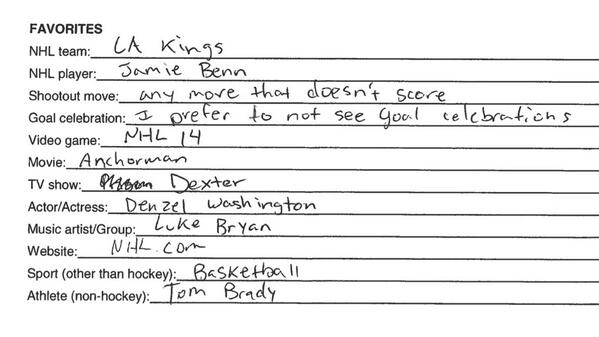 FAVORITES
NHL team: LA Kings
NHL player: Jamie Benn
Shootout move: any move that doesn't score
Goal celebration: I prefer to not see goal celebrations
Video game: NHL 14
Movie: Anchorman
TV show: Dexter
Actor/Actress: Denzel Washington
Music artist/Group: Luke Bryan
Website: NHL.com
Sport (other than hockey): Basketball
Athlete (non-hockey): Tom Brady